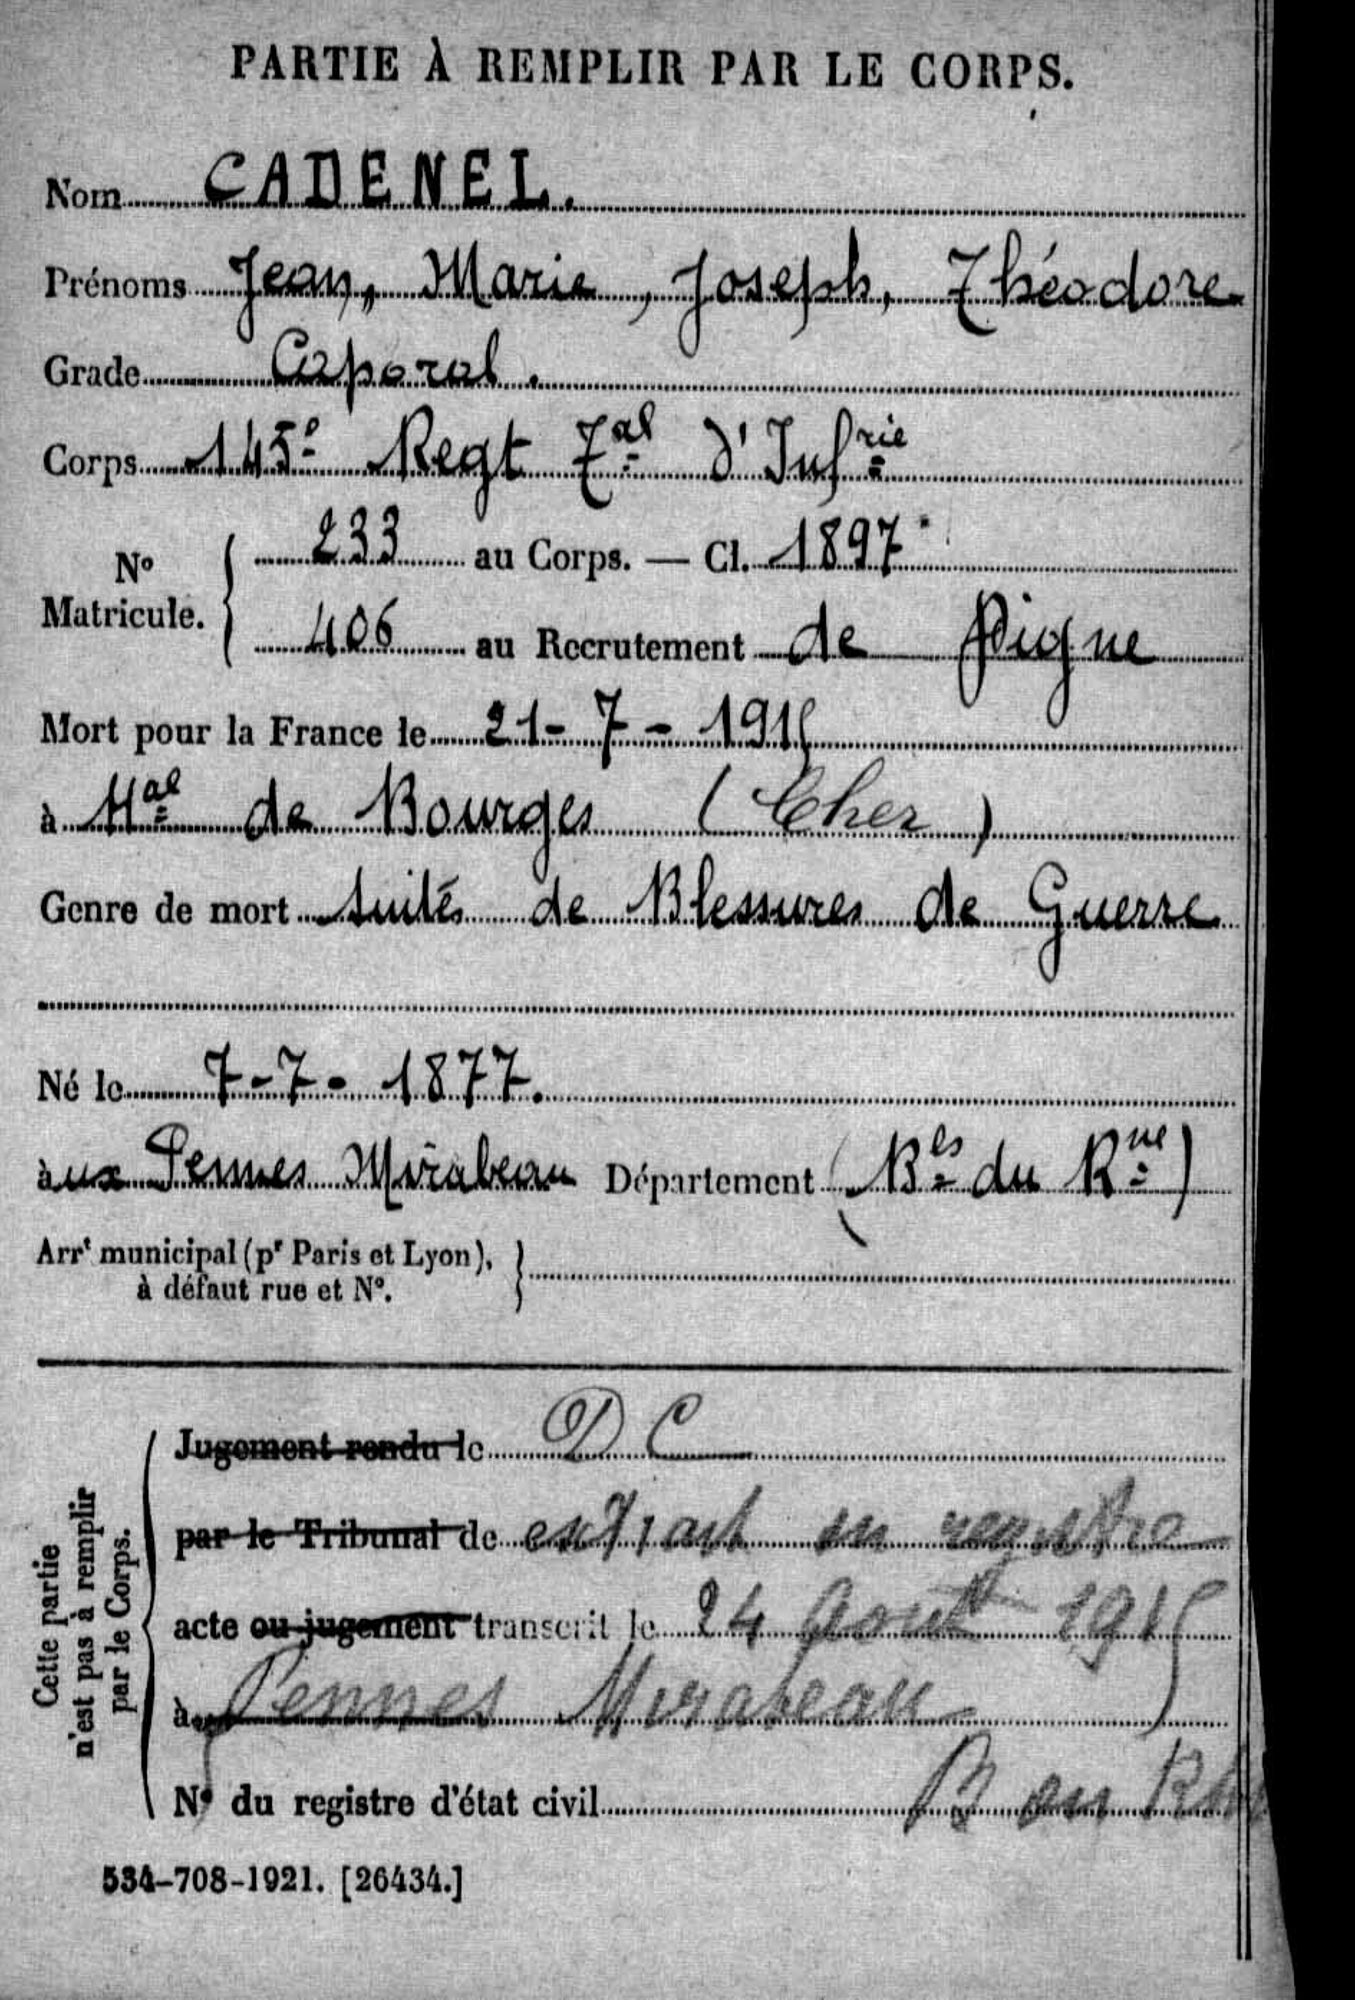 PARTIE À REMPLIR PAR LE CORPS.
Nom CADENEL.
Prénoms Jean, Marie, Joseph, Théodore
Grade Caporal.
Corps 145e Regt Tal d'Infrie
No Matricule. 233 au Corps. — Cl. 1897
406 au Recrutement de Digne
Mort pour la France le 21-7-1915
à Hal de Bourges (Cher)
Genre de mort suites de Blessures de Guerre
Né le 7-7-1877.
aux Pennes Mirabeau Département (Bles du Rne)
Arrt municipal (pr Paris et Lyon),
à défaut rue et No.
Cette partie
n'est pas à remplir
par le Corps.
Jugement rendu le D C
par le Tribunal de extrait du registre
acte ou jugement transcrit le 24 Août 1915
à Pennes Mirabeau
No du registre d'état civil B du Rh
534-708-1921. [26434.]